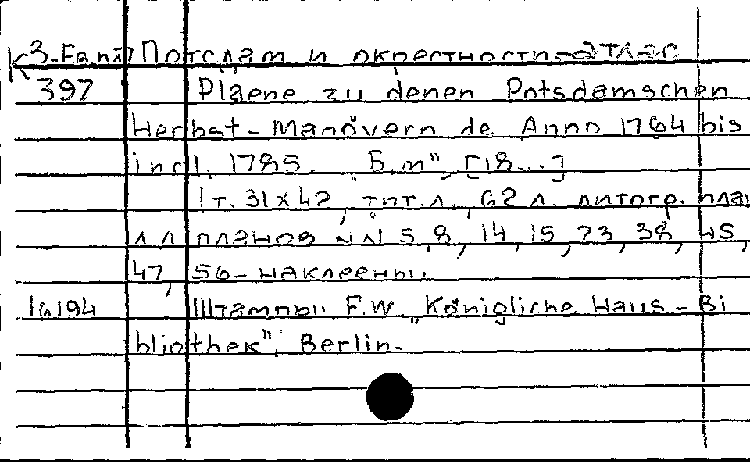 Потсдам и окрестности - атлас
К 397 Plaene zu denen Potsdamschen
Herbst - Manövern de Anno 1764 bis
incl. 1785. "Б.м", [18...]
1 т. 31х42, тит.л., 62 л. литогр. план
л.л планов NN 5, 8, 14, 15, 23, 38, 45,
47, 56 - наклеены.
16194 Штампы: F.W. "Königliche Haus - Bi
bliothek". Berlin.